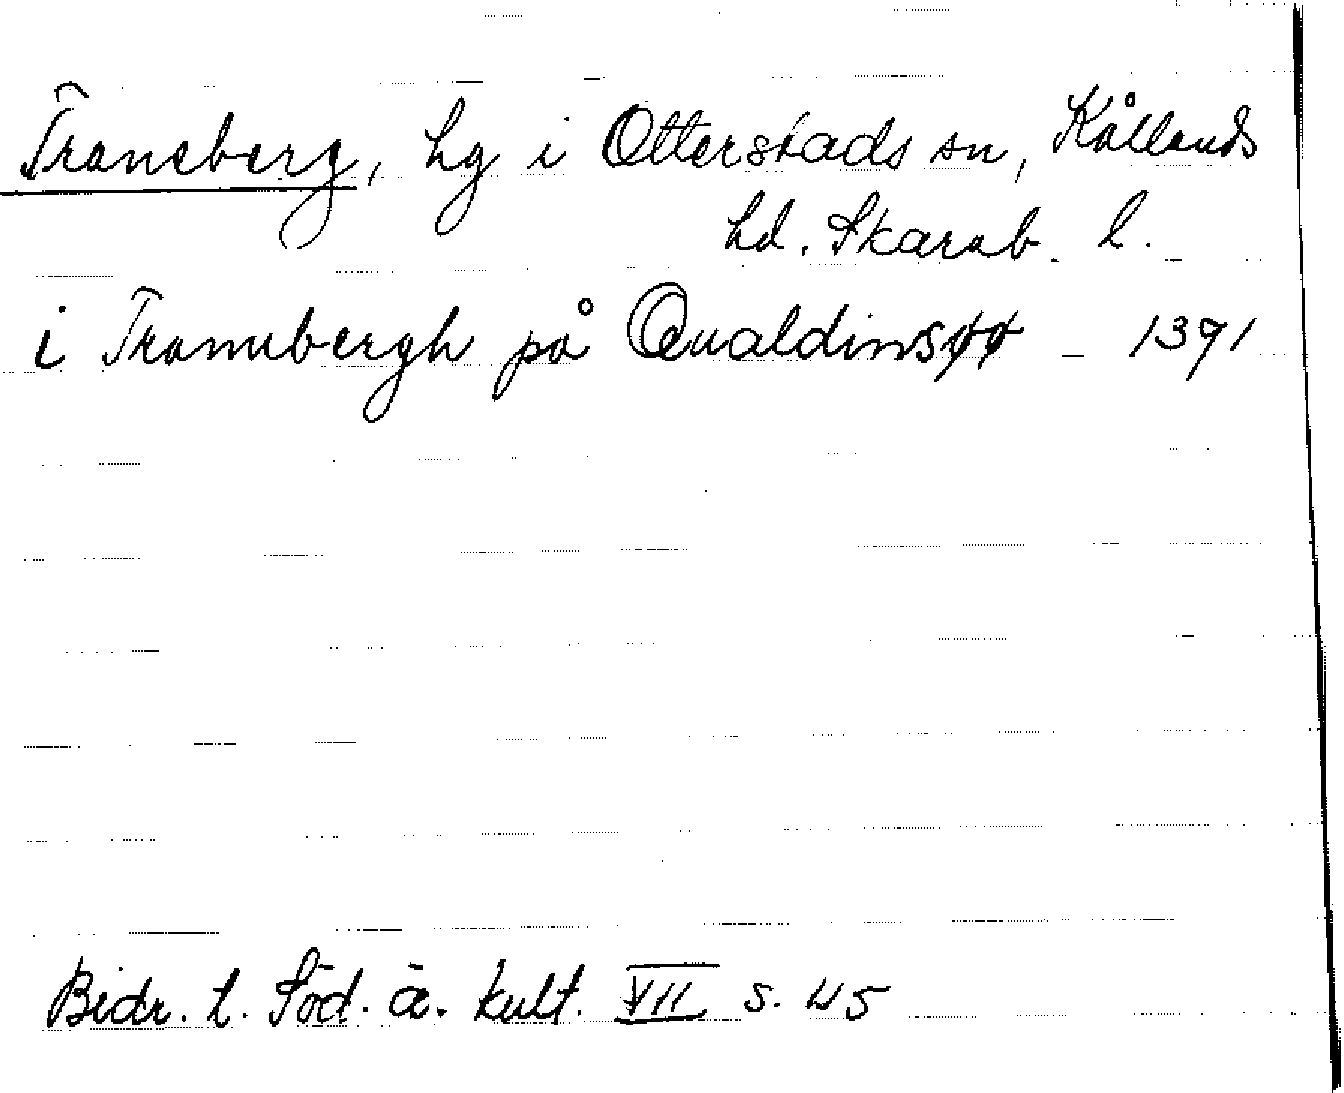 Traneberg, hg i Otterstads sn, Kållands
hd. Skarab. l.
i Tranubergh på Qualdinsøø - 1391
Bidr. t. Söd. ä. kult. VII s. 45